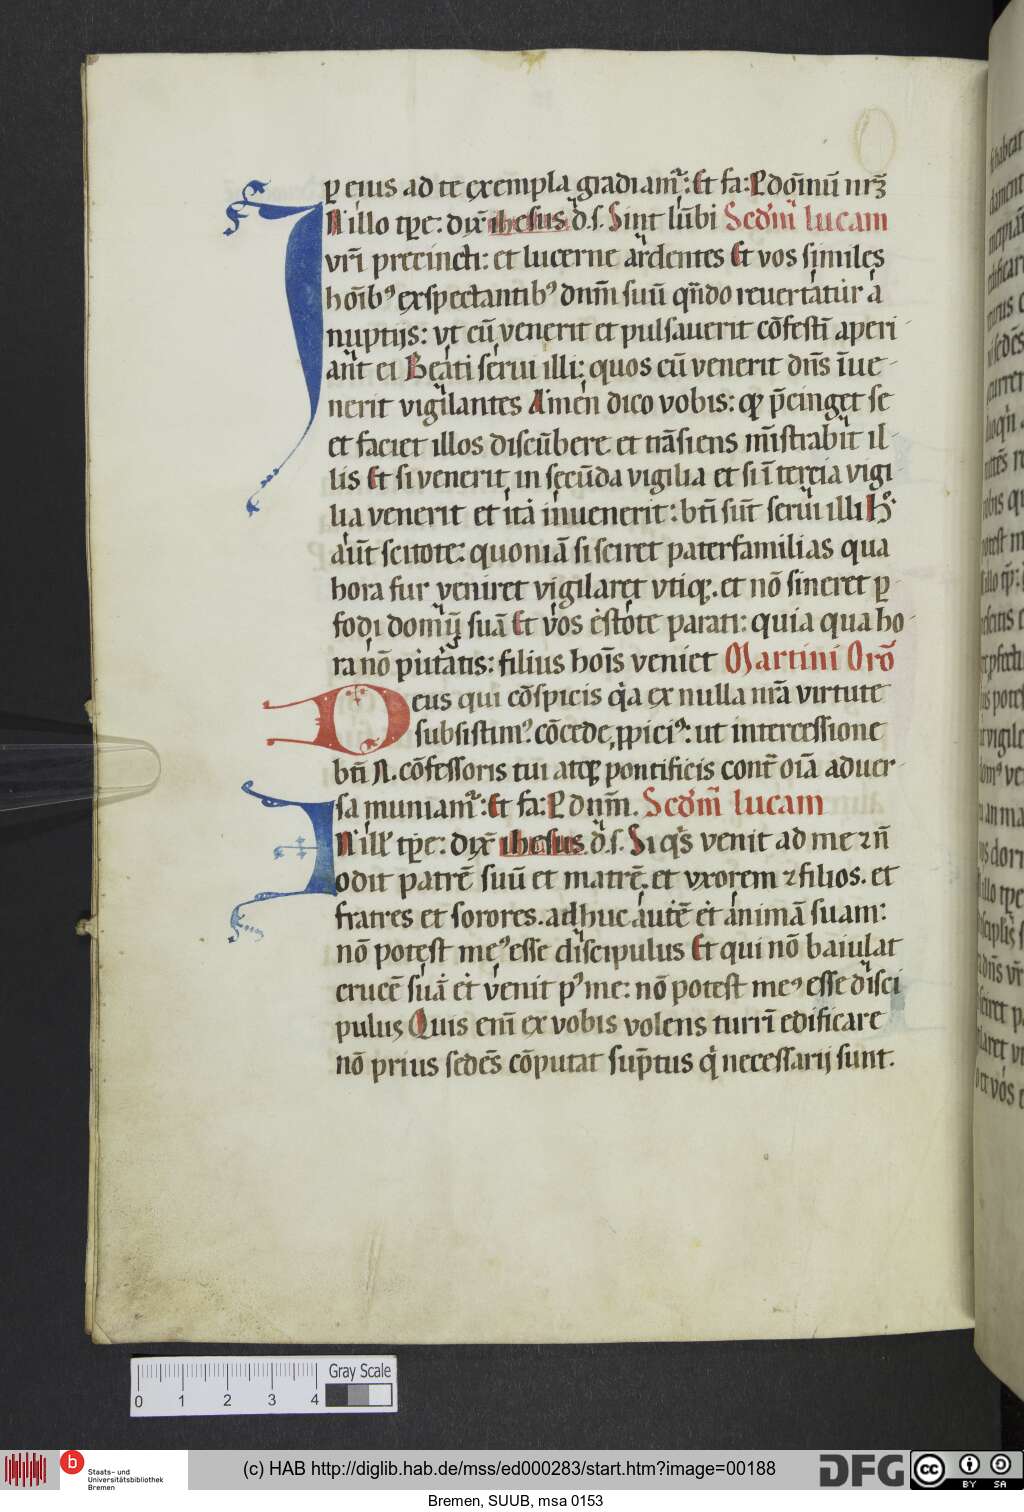 ꝑ eius ad te exempla gradiamᷣ: Et fa: P doi̅nu̅ nr̅ꝫ
IN illo tꝑe: dix̅ ihesus d̅.s. Sint lu̅bi Scd̅m lucam
vr̅i precincti: et lucerne ardentes Et vos similes
hoi̅bꝰ exspectantibꝰ dnm̅ suu̅ qn̅do reuertatur a
nuptijs: vt cu̅ venerit et pulsauerit co̅festi̅ aperi
an̅t ei Beati serui illi: quos cu̅ venerit dn̅s i̅ue-
nerit vigilantes Amen dico vobis: qꝫ p̅cinget se
et faciet illos discu̅bere et tra̅siens mi̅strabit il-
lis Et si venerit in secu̅da vigilia et si i̅ tercia vigi
lia venerit et ita inuenerit: bt̅i su̅t serui illi Hͦ
au̅t scitote: quonia̅ si sciret paterfamilias qua
hora fur veniret vigilaret vtiqꝫ. et no̅ sineret ꝑ
fodi domu̅ sua̅ Et vos estote parati: quia qua ho-
ra no̅ putatis: filius hoi̅s veniet Martini Oro̅
Deus qui co̅spicis qͥa ex nulla nr̅a virtute
subsistimꝰ: co̅cede ꝓpiciꝰ: ut intercessione
bt̅i N. co̅fessoris tui atqꝫ pontificis cont̅ oi̅a aduer-
sa muniamᷣ: Et fa: P dnm̅. Scd̅m lucam
IN illˀ tꝑe: dix̅ ihesus d̅.s. Si qͥs venit ad me ⁊ n̅
odit patre̅ suu̅ et matre̅. et vxorem ⁊ filios. et
fratres et sorores. adhuc aute̅ et anima̅ suam:
no̅ potest meꝰ esse discipulus Et qui no̅ baiulat
cruce̅ sua̅ et venit pꝰ me: no̅ potest meꝰ esse disci
pulus Quis eni̅ ex vobis volens turri̅ edificare
no̅ prius sede̅s co̅putat su̅ptus qͥ necessarij sunt.
Gray Scale
0 1 2 3 4
b
Staats- und
Universitätsbibliothek
Bremen
(c) HAB http://diglib.hab.de/mss/ed000283/start.htm?image=00188
DFG
cc
BY SA
Bremen, SUUB, msa 0153